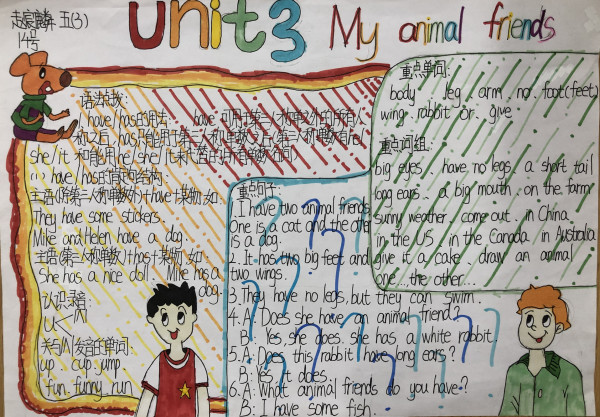 赵宸麟 五(3)
14号
Unit3 My animal friends
语法我:
1. have/has的用法: have 可用于第三人称单数以外的所有人
称之后, has只能用于第三人称单数之后(第三人称单数有he/
she/it 和能用he/she/it来代替的所有单数名词)
(1) have/has的肯定结构:
主语(除第三人称单数外)+have+某物,如:
They have some stickers.
Mike and Helen have a dog.
主语(第三人称单数)+has+某物,如:
She has a nice doll. Mike has a
dog.
认识
U<
关与/ʌ/发音的单词:
up cup jump
fun. funny run
重点句子:
1. I have two animal friends.
One is a cat and the other
is a dog.
2. It has two big feet and
two wings.
3. They have no legs, but they can swim.
4. A: Does she have an animal friend?
B: Yes, she does. she has a white rabbit.
5. A: Does this rabbit have long ears?
B: Yes it does.
6. A: What animal friends do you have?
B: I have some fish.
重点单词:
body leg. arm. no. foot(feet)
wing. rabbit or. give
重点词组:
big eyes. have no legs. a short tail
long ears. a big mouth. on the farm
sunny weather. come out. in China.
in the US. in the Canada. in Australia
give it a cake. draw an animal
one...the other...